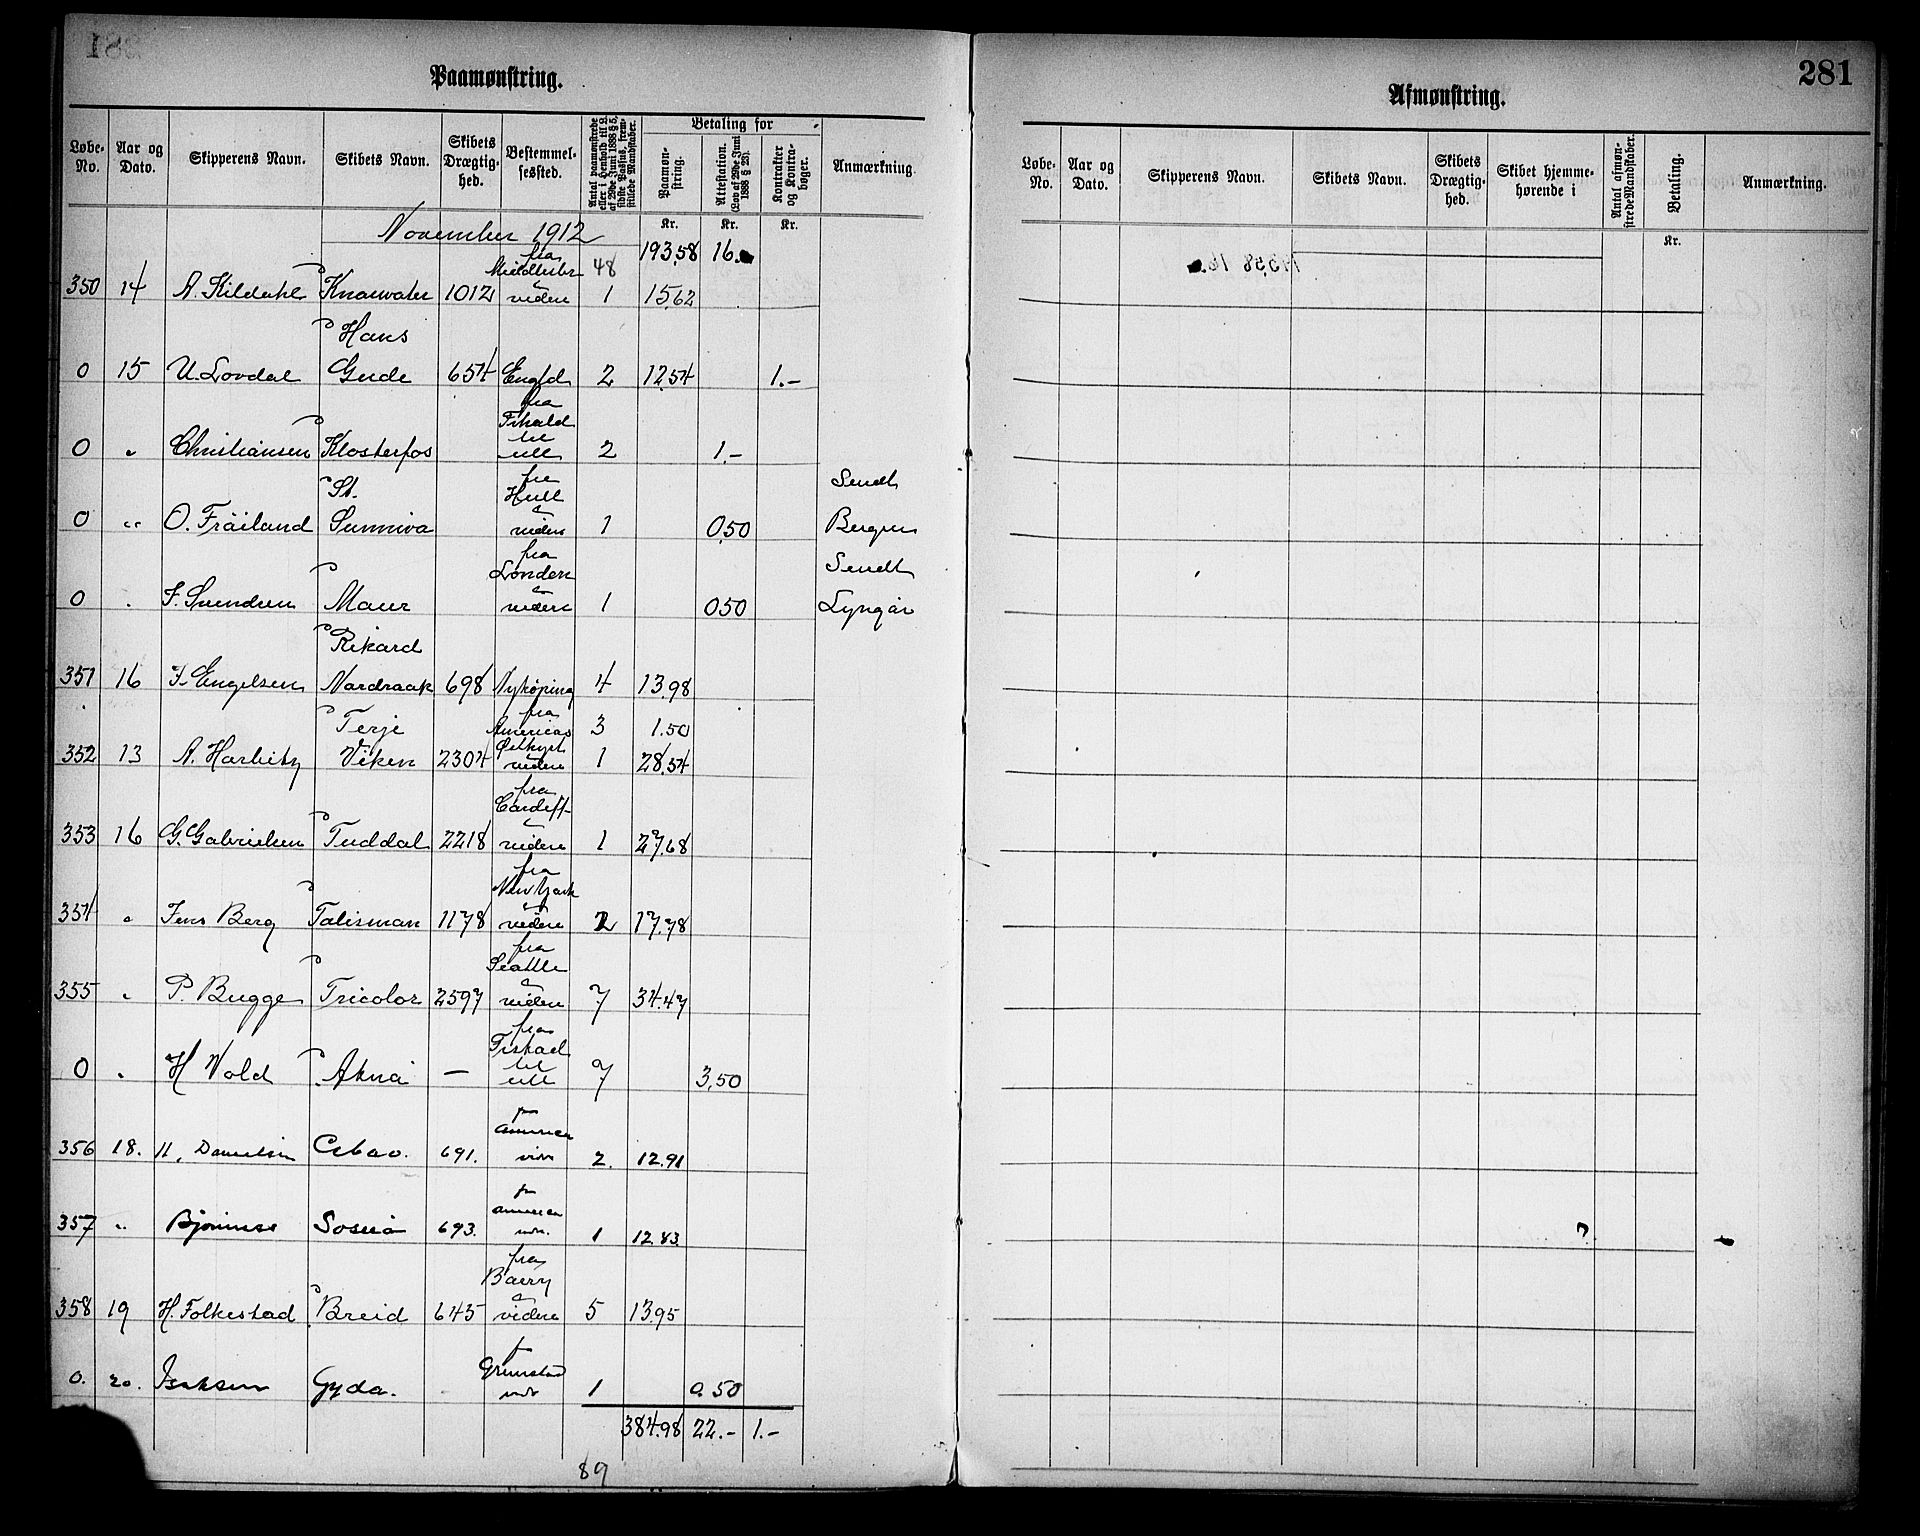 281
Paamønstring.
Løbe-No.
Aar og Dato.
Skipperens Navn.
Skibets Navn.
Skibets Drægtighed.
Bestemmelsessted.
Antal paamønstrede eller i Henhold til L. af 29de Juni 1888 § 5, sidste Passus, fremstillede Mandskaber.
Betaling for
Paamønstring.
Attestation. (Lov af 29de Juni 1888 § 23).
Kontrakter og Kontrabøger.
Anmærkning.
Kr. Kr. Kr.
November 1912
48 193,58 16.
350 14 A. Kildahl Knarwater 1012 fra videre 1 15,62
0 15 U. Lovdal Hans Gude 654 Engld 2 12,54 1.-
0 " Christiansen Klosterfos fra til 2 1.-
0 " O. Fröiland St. Sunniva fra Hull videre 1 0,50 Sendt Bergen
0 " F. Svendsen Maur fra London videre 1 0,50 Sendt Lyngør
351 16 F. Engelsen Rikard Nordraak 698 Nykøping 4 13,98
352 13 A. Harbitz Terje Viken 2304 fra Americas Østkyst videre 3 1.50
1 28,54
353 16 G. Gabrielsen Tuddal 2218 fra Cardiff videre 1 27,68
354 " Jens Berg Talisman 1178 fra New York videre 2 17,78
355 " P. Bugge Tricolor 2597 fra Seattle videre 7 34.47
0 " H Vold Aknå — fra til 7 3,50
356 18. H. Danielsen Cibao. 691. America 2. 12.91
357 " Bjønness Sosuå 693. America 1 12.83
358 19 H. Folkestad Breid 645 fra Barry videre 5 13.95
0. 20. Isaksen Gyda. Grimstad 1 0.50
384.98 22.- 1.-
89
Afmønstring.
281
Løbe-No.
Aar og Dato.
Skipperens Navn.
Skibets Navn.
Skibets Drægtighed.
Skibet hjemmehørende i
Antal afmønstrede Mandskaber.
Betaling.
Anmærkning.
Kr.